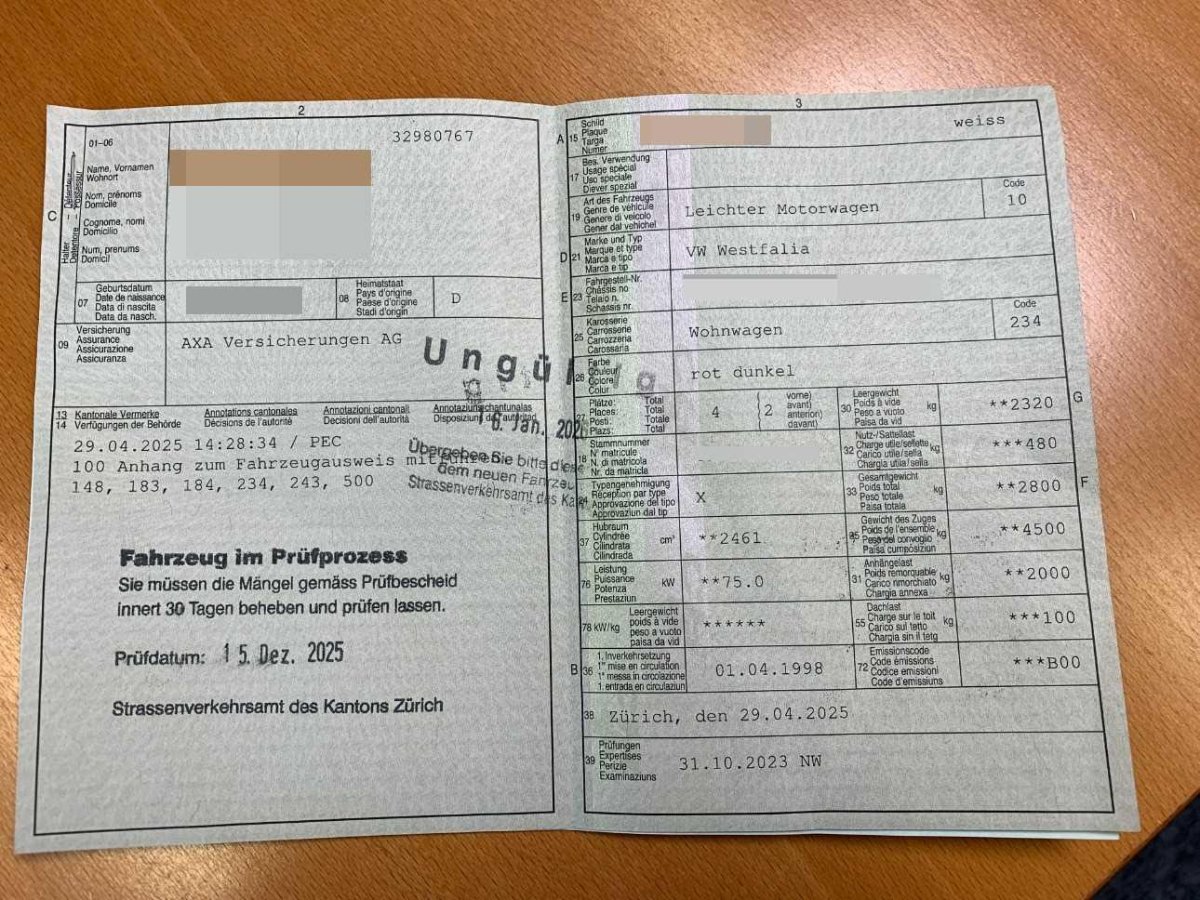 2
32980767
01-06
Name, Vornamen
Wohnort
Nom, prénoms
Domicile
Cognome, nomi
Domicilio
Num, prenums
Domicil
C
Halter – Détenteur
Detentore – Possessur
07
Geburtsdatum
Date de naissance
Data di nascita
Data da nasch.
08
Heimatstaat
Pays d'origine
Paese d'origine
Stadi d'origin
D
09
Versicherung
Assurance
Assicurazione
Assicuranza
AXA Versicherungen AG
Ungültig
16. Jan. 202
13
14
Kantonale Vermerke
Verfügungen der Behörde
Annotations cantonales
Décisions de l'autorité
Annotazioni cantonali
Decisioni dell'autorità
Annotaziuns chantunalas
Disposiziun da l'autoritad
29.04.2025 14:28:34 / PEC
100 Anhang zum Fahrzeugausweis mitführen
148, 183, 184, 234, 243, 500
Übergeben Sie bitte diese
dem neuen Fahrzeu
Strassenverkehrsamt des Ka
Fahrzeug im Prüfprozess
Sie müssen die Mängel gemäss Prüfbescheid
innert 30 Tagen beheben und prüfen lassen.
Prüfdatum: 15. Dez. 2025
Strassenverkehrsamt des Kantons Zürich
3
A
15
Schild
Plaque
Targa
Numer
weiss
17
Bes. Verwendung
Usage spécial
Uso speciale
Diever spezial
19
Art des Fahrzeugs
Genre de véhicule
Genere di veicolo
Gener dal vehichel
Leichter Motorwagen
Code
10
D
21
Marke und Typ
Marque et type
Marca e tipo
Marca e tip
VW Westfalia
E
23
Fahrgestell-Nr.
Châssis no
Telaio n.
Schassis nr.
25
Karosserie
Carrosserie
Carrozzeria
Carossaria
Wohnwagen
Code
234
26
Farbe
Couleur
Colore
Colur
rot dunkel
27
Plätze: Total
Places: Total
Posti: Totale
Plazs: Total
4
2
vorne)
avant)
anteriori)
davant)
30
Leergewicht
Poids à vide
Peso a vuoto
Paisa da vid
kg
**2320
G
18
Stammnummer
N° matricule
N. di matricola
Nr. da matricla
32
Nutz-/Sattellast
Charge utile/sellette
Carico utile/sella
Chargia utila/sella
kg
***480
24
Typengenehmigung
Réception par type
Approvazione del tipo
Approvaziun dal tip
X
33
Gesamtgewicht
Poids total
Peso totale
Paisa totala
kg
**2800
F
37
Hubraum
Cylindrée
Cilindrata
Cilindrada
cm³
**2461
35
Gewicht des Zuges
Poids de l'ensemble
Peso del convoglio
Paisa cumposiziun
kg
**4500
76
Leistung
Puissance
Potenza
Prestaziun
kW
**75.0
31
Anhängelast
Poids remorquable
Carico rimorchiato
Chargia annexa
kg
**2000
78 kW/kg
Leergewicht
poids à vide
peso a vuoto
paisa da vid
******
55
Dachlast
Charge sur le toit
Carico sul tetto
Chargia sin il tetg
kg
***100
B
36
1. Inverkehrsetzung
1re mise en circulation
1a messa in circolazione
1. entrada en circulaziun
01.04.1998
72
Emissionscode
Code émissions
Codice emissioni
Code d'emissiuns
***B00
38
Zürich, den 29.04.2025
39
Prüfungen
Expertises
Perizie
Examinaziuns
31.10.2023 NW